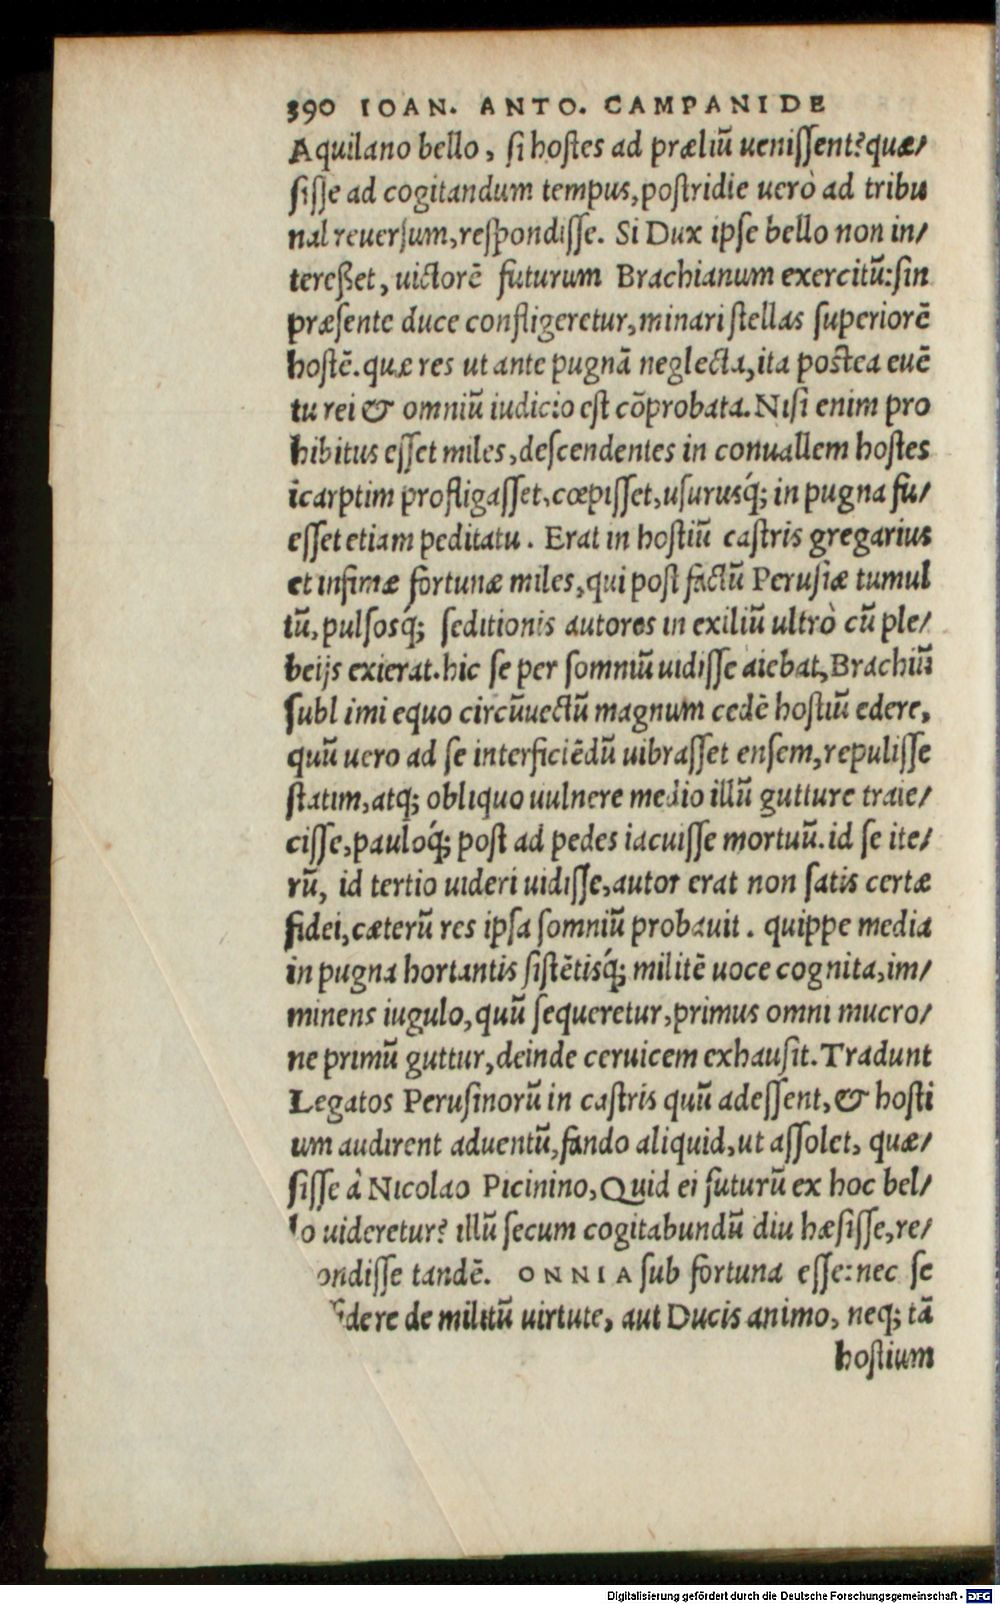 390 IOAN. ANTO. CAMPANI DE
Aquilano bello, si hostes ad præliũ uenissent? quæ/
sisse ad cogitandum tempus, postridie uerò ad tribu
nal reuersum, respondisse. Si Dux ipse bello non in/
tereßet, uictorẽ futurum Brachianum exercitũ: sin
præsente duce confligeretur, minari stellas superiorẽ
hostẽ. quæ res ut ante pugnã neglecta, ita postea euẽ
tu rei & omniũ iudicio est cõprobata. Nisi enim pro
hibitus esset miles, descendentes in conuallem hostes
icarptim profligasset, cœpisset, usurusq́; in pugna fu/
esset etiam peditatu. Erat in hostiũ castris gregarius
et infimæ fortunæ miles, qui post factũ Perusiæ tumul
tũ, pulsosq́; seditionis autores in exiliũ ultrò cũ ple/
beijs exierat. hic se per somniũ uidisse aiebat, Brachiũ
subl imi equo circũuectũ magnum cedẽ hostiũ edere,
quũ uero ad se interficiẽdũ uibrasset ensem, repulisse
statim, atq; obliquo uulnere medio illũ gutture traie/
cisse, pauloq́; post ad pedes iacuisse mortuũ. id se ite/
rũ, id tertio uideri uidisse, autor erat non satis certæ
fidei, cæterũ res ipsa somniũ probauit. quippe media
in pugna hortantis sistẽtisq́; militẽ uoce cognita, im/
minens iugulo, quũ sequeretur, primus omni mucro/
ne primũ guttur, deinde ceruicem exhausit. Tradunt
Legatos Perusinorũ in castris quũ adessent, & hosti
um audirent aduentũ, fando aliquid, ut assolet, quæ/
sisse à Nicolao Picinino, Quid ei futurũ ex hoc bel/
lo uideretur? illũ secum cogitabundũ diu hæsisse, re/
ondisse tandẽ. ONNIA sub fortuna esse: nec se
dere de militũ uirtute, aut Ducis animo, neq; tã
hostium
Digitalisierung gefördert durch die Deutsche Forschungsgemeinschaft - DFG